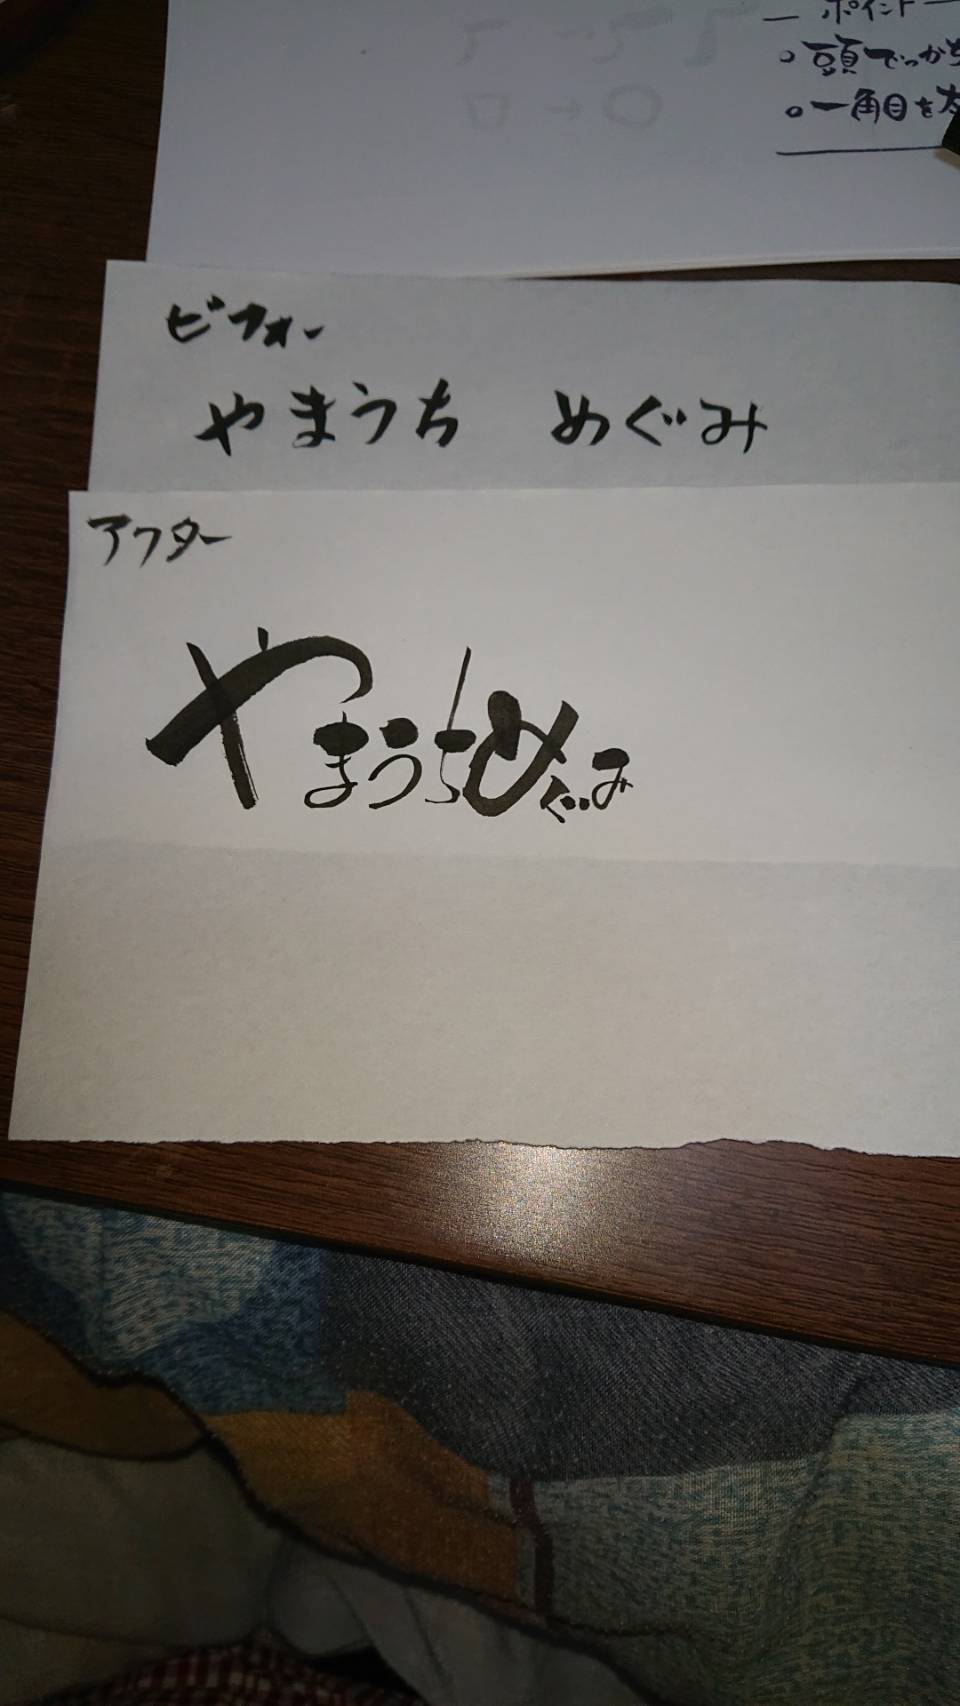 ポイント
○頭でっかち
○一角目を太
ビフォー
やまうち めぐみ
アフター
やまうちめぐみ